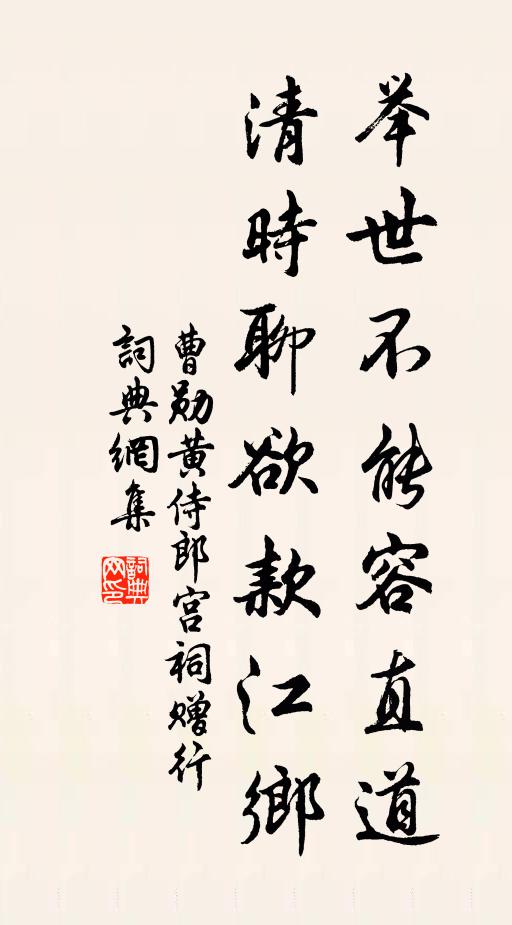 举世不能容直道
清時聊欲款江鄉
曹勋黄侍郎宫祠赠行
詞典網集
詞典网印